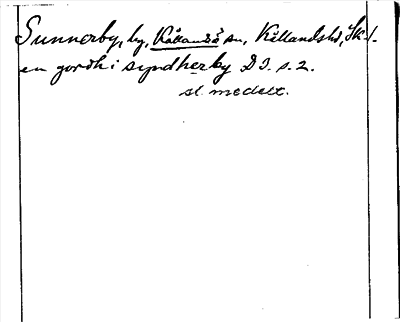 Sunnerby, by, Kållandsö sn, Kållands hd, Sk. l.
en gordh i syndherby D 3. s. 2.
sl. medelt.